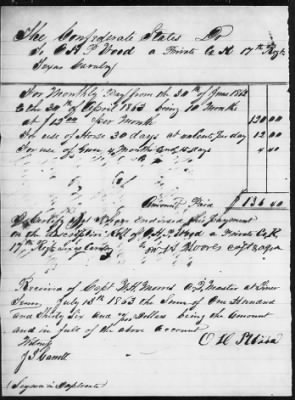 The Confederate States Dr
To O H P Wood a Private Co K 17th Regt
Texas Cavalry
For Monthly Pay from the 30th of June 1862
to the 30th of April 1863 being 10 Months
at $12.00 Per Month 120 00
For use of Horse 30 days at 40 cents Per day 12 00
For use of Gun 4 Months and days 4 40
$ 136 40
I Certify that I have endorsed this Payment
on the Descriptive Roll of O H P Wood a Private Co K
17th Regt Texas Cavalry
Received of Capt W H Morris A Q Master at
Tenn, July 13th 1863 the Sum of One Hundred
and Thirty Six and 40/100 Dollars being the Amount
and in full of the above Account
Witness O H P Wood
(Signed in Duplicate)